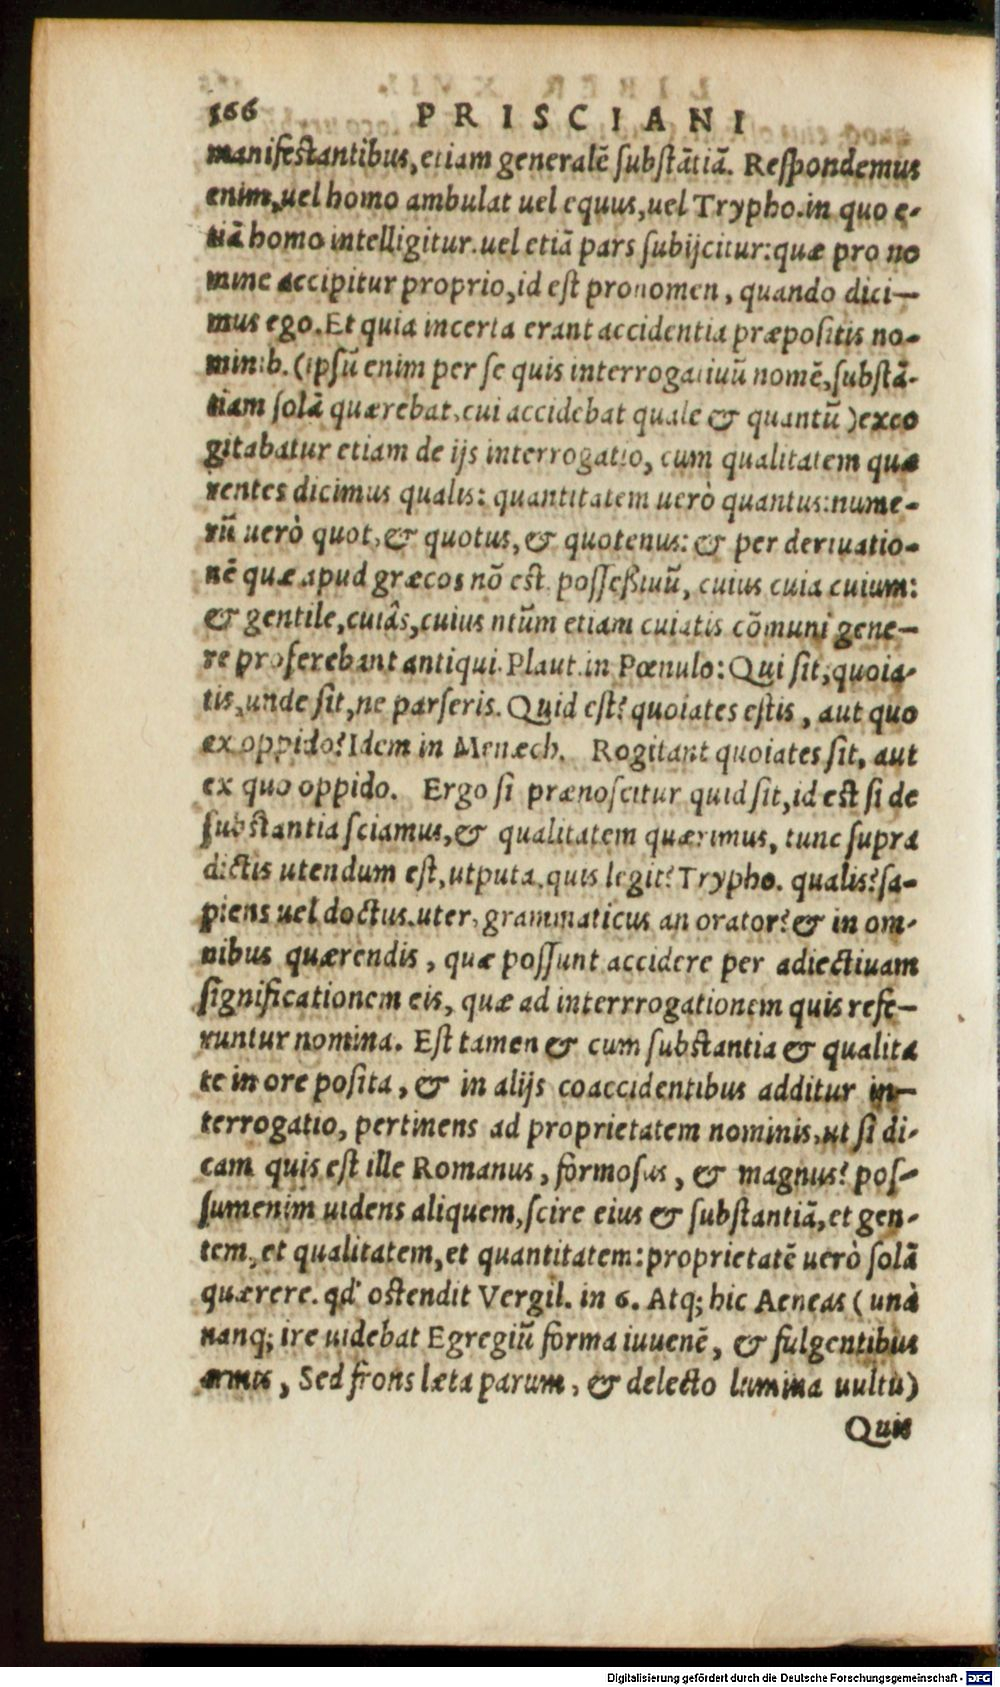 566 PRISCIANI
manifestantibus, etiam generalẽ substãtiã. Respondemus
enim, uel homo ambulat uel equus, uel Trypho. in quo e-
tiã homo intelligitur. uel etiã pars subijcitur: quæ pro no
mine accipitur proprio, id est pronomen, quando dici—
mus ego. Et quia incerta erant accidentia præpositis no-
minib. (ipsũ enim per se quis interrogatiuũ nomẽ, substã-
tiam solã quærebat, cui accidebat quale & quantũ) exco
gitabatur etiam de ijs interrogatio, cum qualitatem quæ
rentes dicimus qualis: quantitatem uerò quantus: nume-
rũ uerò quot, & quotus, & quotenus: & per deriuatio-
nẽ quæ apud græcos nõ est possessiuũ, cuius cuia cuium:
& gentile, cuiâs, cuius ntũm etiam cuiatis cõmuni gene—
re proferebant antiqui. Plaut. in Pœnulo: Qui sit, quoia-
tis, unde sit, ne parseris. Quid est? quoiates estis, aut quo
ex oppido? Idem in Menæch. Rogitant quoiates sit, aut
ex quo oppido. Ergo si prænoscitur quid sit, id est si de
substantia sciamus, & qualitatem quærimus, tunc supra
dictis utendum est, utputa. quis legit? Trypho. qualis? sa-
piens uel doctus. uter, grammaticus an orator? & in om-
nibus quærendis, quæ possunt accidere per adiectiuam
significationem eis, quæ ad interrrogationem quis refe—
runtur nomina. Est tamen & cum substantia & qualita
te in ore posita, & in alijs coaccidentibus additur in—
terrogatio, pertinens ad proprietatem nominis, ut si di-
cam quis est ille Romanus, formosus, & magnus? pos-
sumenim uidens aliquem, scire eius & substantiã, et gen-
tem, et qualitatem, et quantitatem: proprietatẽ uerò solã
quærere. qd' ostendit Vergil. in 6. Atq; hic Aeneas (unà
nanq; ire uidebat Egregiũ forma iuuenẽ, & fulgentibus
armis, Sed frons læta parum, & delecto lumina uultu)
Quis
Digitalisierung gefördert durch die Deutsche Forschungsgemeinschaft - DFG